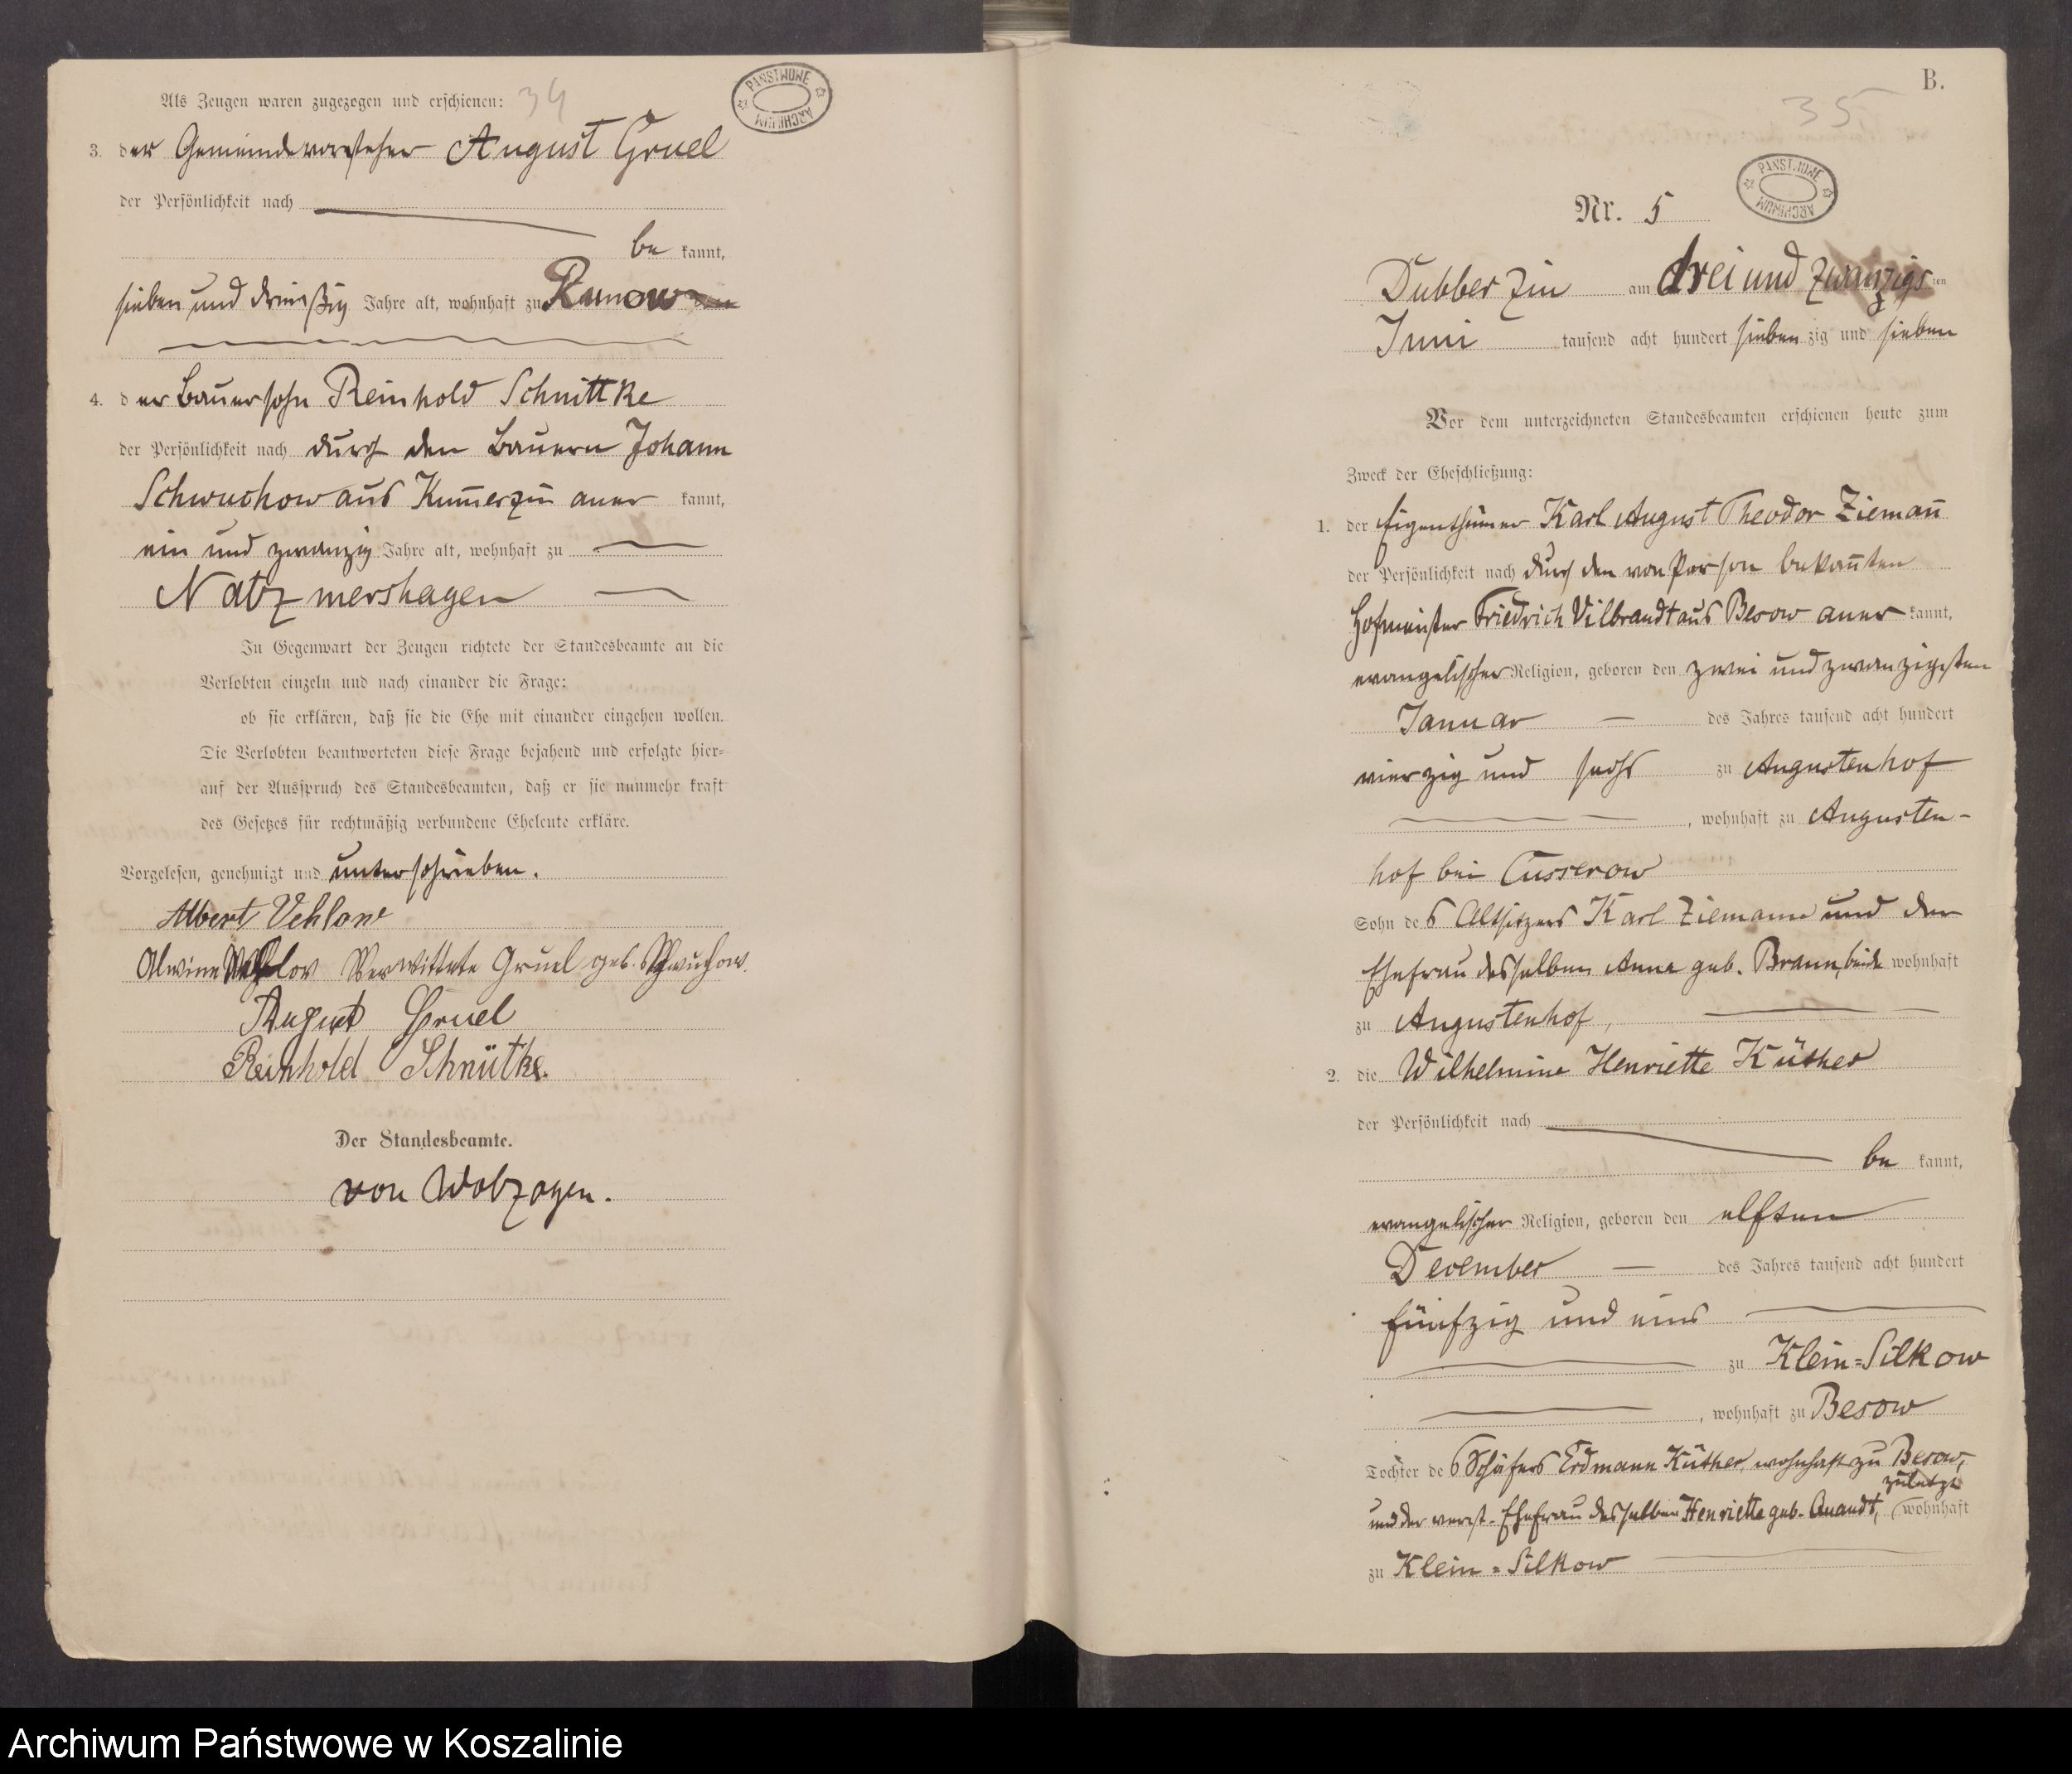 Als Zeugen waren zugezogen und erschienen:
34
PAŃSTWOWE ARCHIWUM
3. der Gemeindevorsteher August Gruel
der Persönlichkeit nach
be kannt,
sieben und dreißig Jahre alt, wohnhaft zu Runow
4. der Bauersohn Reinhold Schnittke
der Persönlichkeit nach durch den Bauern Johann
Schwuchow aus Kum̄erzin aner kannt,
ein und zwanzig Jahre alt, wohnhaft zu
Natzmershagen
In Gegenwart der Zeugen richtete der Standesbeamte an die
Verlobten einzeln und nach einander die Frage:
ob sie erklären, daß sie die Ehe mit einander eingehen wollen.
Die Verlobten beantworteten diese Frage bejahend und erfolgte hier-
auf der Ausspruch des Standesbeamten, daß er sie nunmehr kraft
des Gesetzes für rechtmäßig verbundene Eheleute erkläre.
Vorgelesen, genehmigt und unterschrieben.
Albert Vehlow
Alwine Verwittete Gruel geb. Schwuchow.
August Gruel
Reinhold Schnüttke.
Der Standesbeamte.
von
B.
35
PAŃSTWOWE ARCHIWUM
Nr. 5
Dubberzin am drei und zwanzigs ten
Juni tausend acht hundert sieben zig und sieben
Vor dem unterzeichneten Standesbeamten erschienen heute zum
Zweck der Eheschließung:
1. der Eigenthümer Karl August Theodor Ziemañ
der Persönlichkeit nach durch den von Person bekañten
Hofmeister Friedrich Vilbrandt aus Besow aner kannt,
evangelischer Religion, geboren den zwei und zwanzigsten
Januar des Jahres tausend acht hundert
vierzig und sechs zu Augustenhof
, wohnhaft zu Augusten-
hof bei Cusserow
Sohn des Altsitzers Karl Ziemann und der
Ehefrau desselben Anna geb. Braun, beide wohnhaft
zu Augustenhof,
2. die Wilhelmine Henriette Küther
der Persönlichkeit nach
be kannt,
evangelischer Religion, geboren den elften
December des Jahres tausend acht hundert
fünfzig und eins
zu Klein=Silkow
, wohnhaft zu Besow
Tochter des Schäfers Erdmann Küther, wohnhaft zu Besow,
zuletzt
und der verst. Ehefrau desselben Henriette geb. Quandt, wohnhaft
zu Klein=Silkow
Archiwum Państwowe w Koszalinie